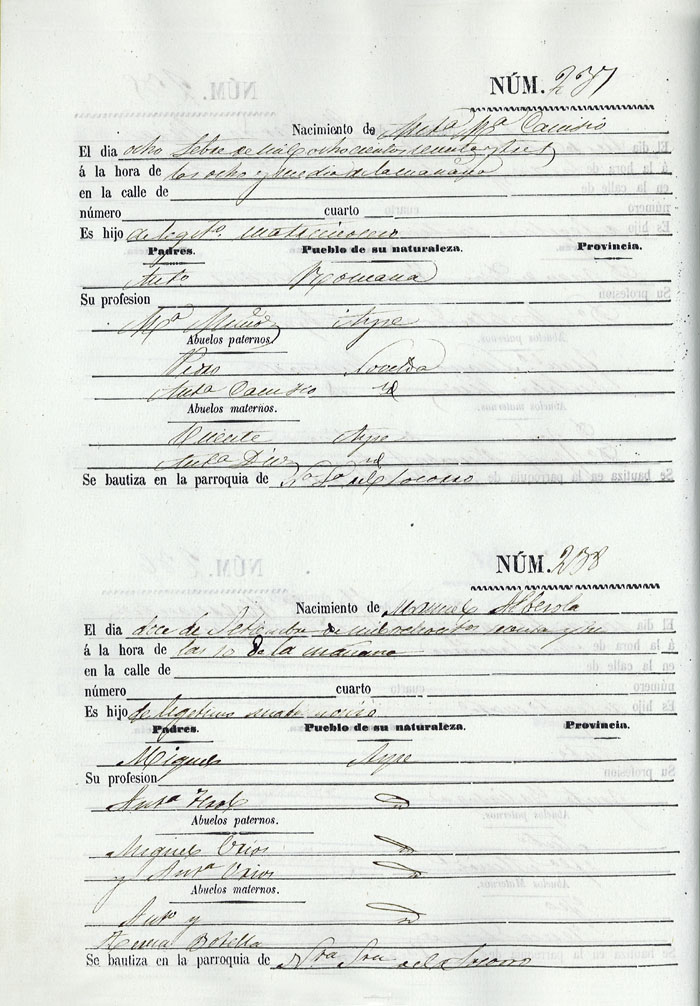 NÚM. 237
Nacimiento de Anta Ma Cañisio
El dia ocho Sebre de mil ochocientos
á la hora de las ocho y media de la mañana
en la calle de
número cuarto
Es hijo de legmo. matrimonio
Padres. Pueblo de su naturaleza. Provincia.
Anto Romana
Su profesion
Ma Muñoz Aspe
Abuelos paternos.
Pedro Novelda
Anta Cañisio id
Abuelos maternos.
Vicente Aspe
Anta Diez id
Se bautiza en la parroquia de Nra Sra del Socorro
NÚM. 238
Nacimiento de Manuel Alberola
El dia doce de Setiembre de mil
á la hora de las 10 de la mañana
en la calle de
número cuarto
Es hijo de legitimo matrimonio
Padres. Pueblo de su naturaleza. Provincia.
Miguel Aspe
Su profesion
Anta
Abuelos paternos.
Miguel Orios
y Anta Orios
Abuelos maternos.
Anto y
Teresa Botella
Se bautiza en la parroquia de Nra Sra del Socorro